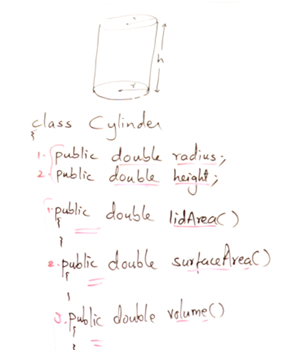 r
h
r
class Cylinder
{
1. public double radius;
2. public double height;
1. public double lidArea()
{
}
2. public double surfaceArea()
{
}
3. public double volume()
{